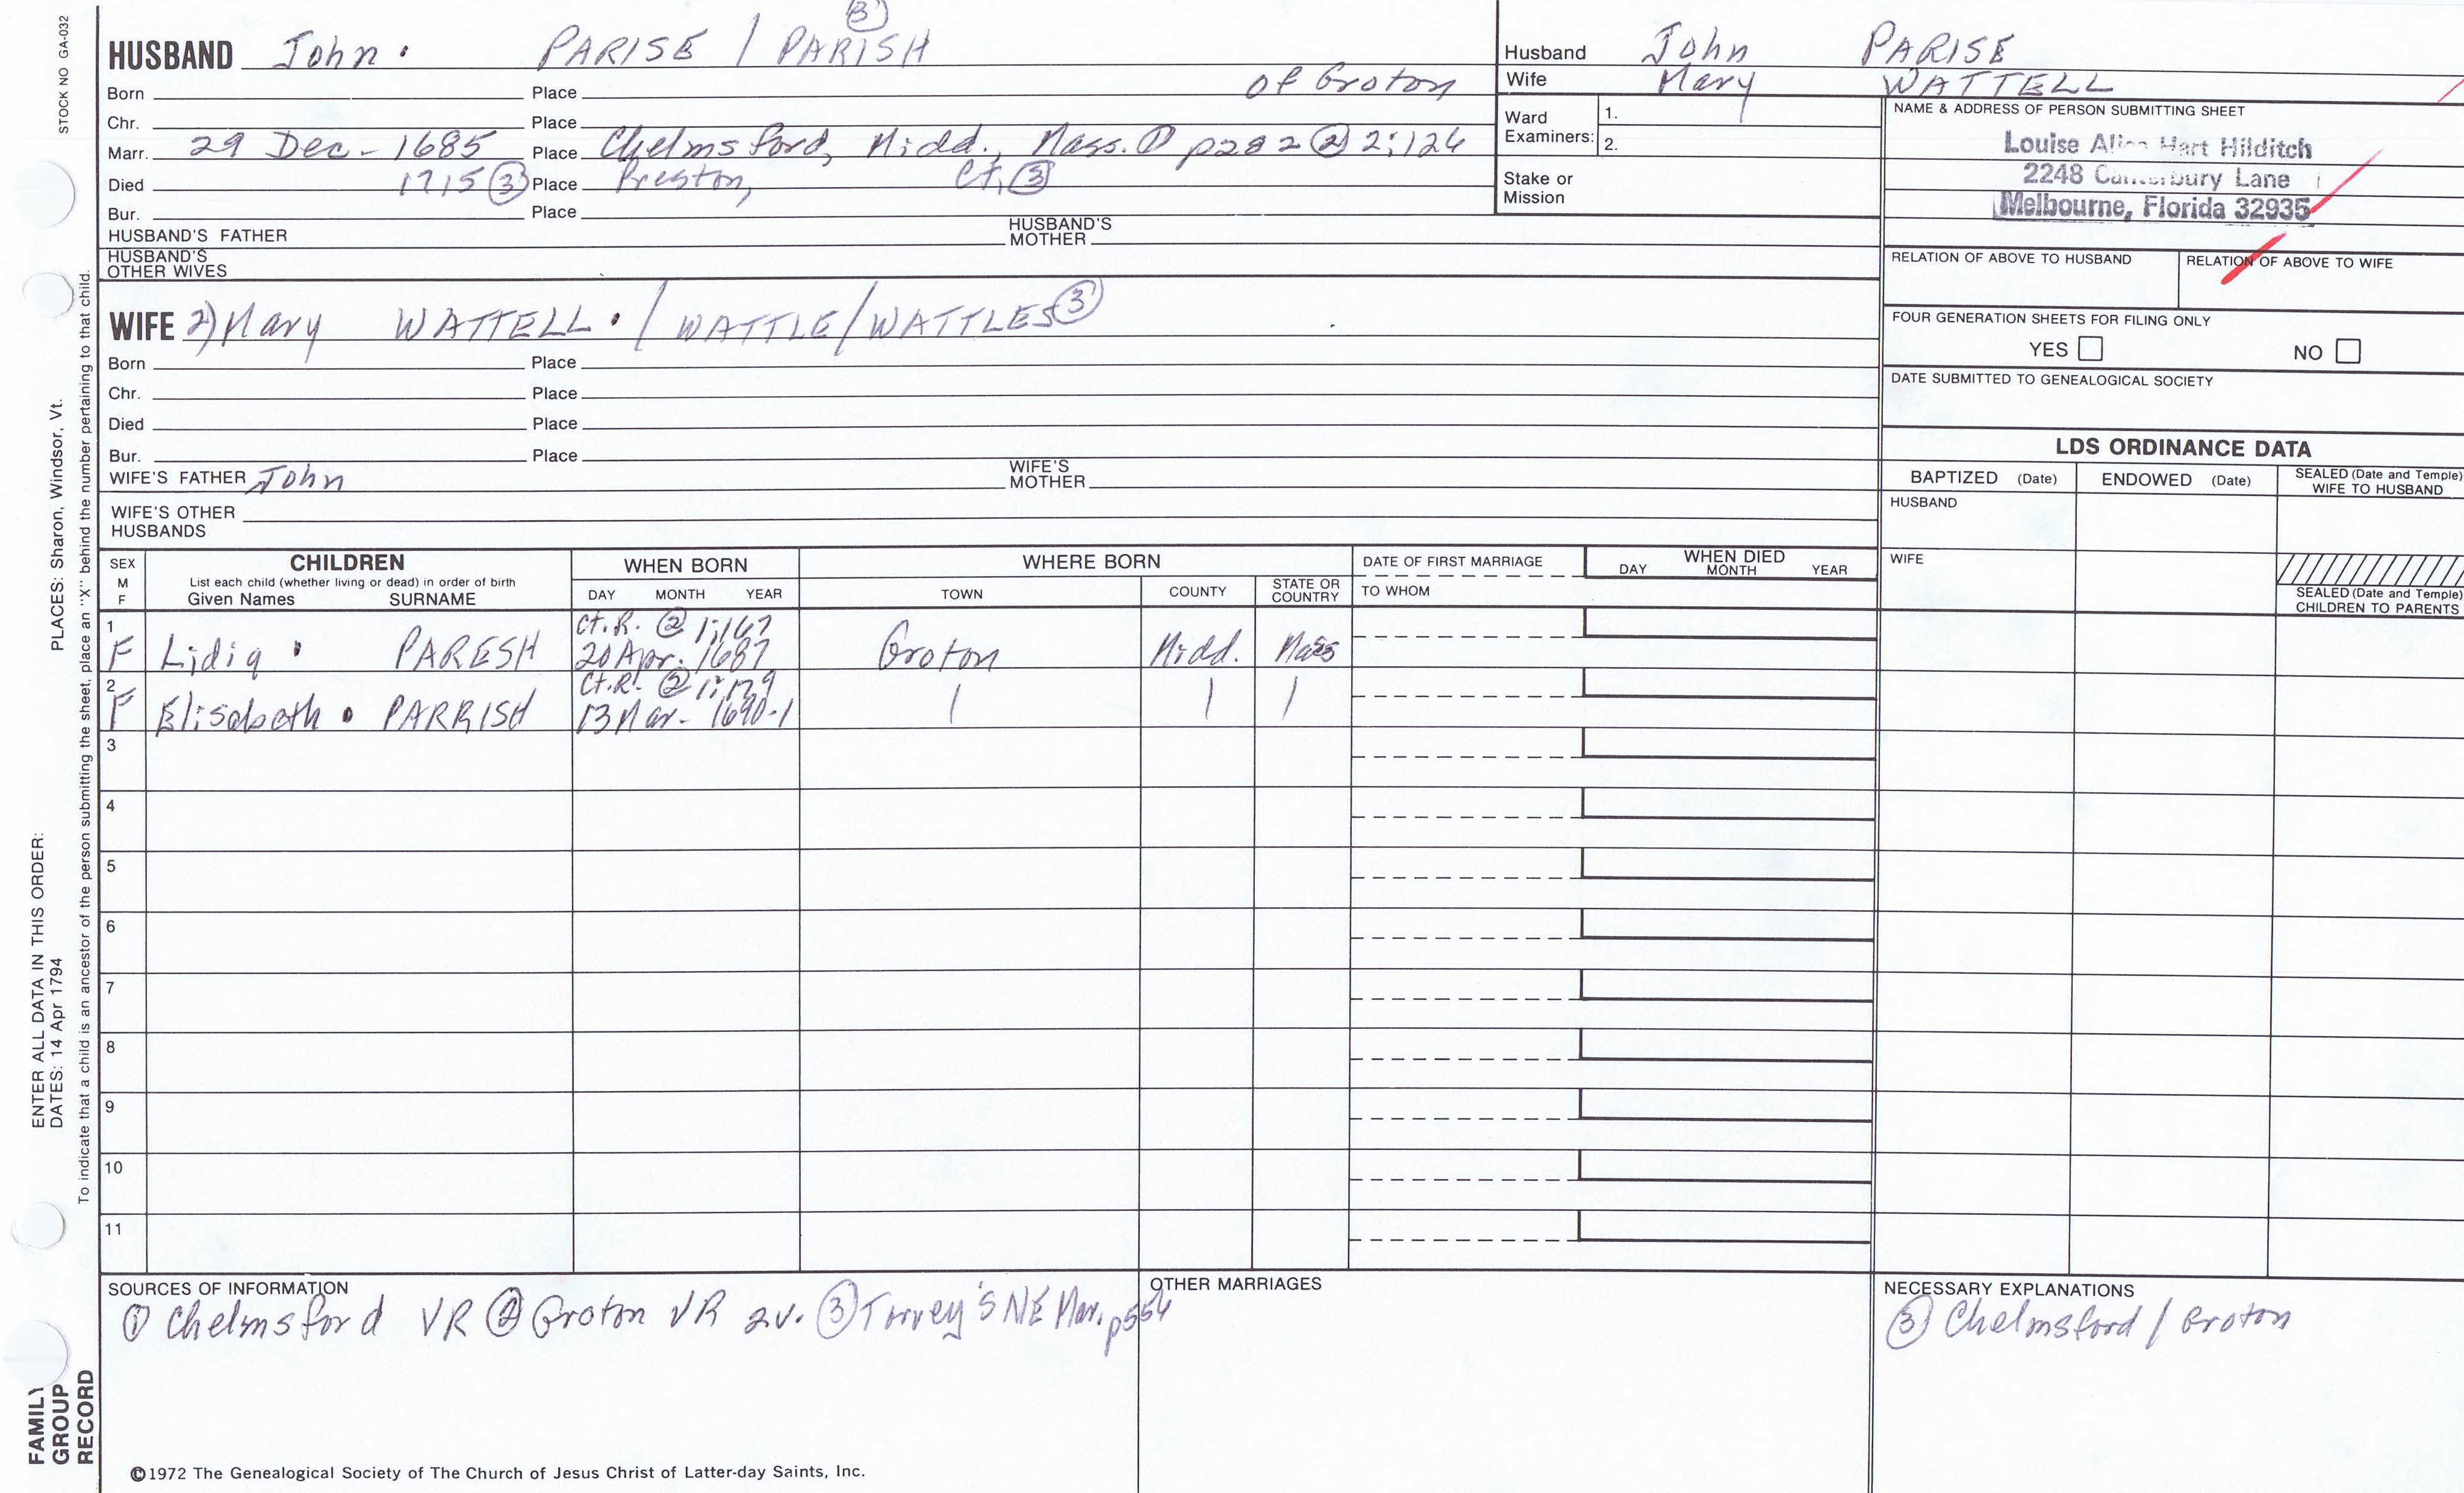 STOCK NO GA-032
③
HUSBAND John. PARISE / PARISH
of Groton
Born Place
Chr. Place
Marr. 29 Dec - 1685 Place Chelmsford, Midd., Mass. ① p282 ② 2:126
Died 1715 ③ Place Preston, Ct, ③
Bur. Place
HUSBAND'S FATHER HUSBAND'S MOTHER
HUSBAND'S OTHER WIVES
WIFE 2) Mary WATTELL. / WATTLE/WATTLES ③
Born Place
Chr. Place
Died Place
Bur. Place
WIFE'S FATHER John WIFE'S MOTHER
WIFE'S OTHER HUSBANDS
Husband John PARISE
Wife Mary WATTELL
Ward Examiners: 1.
2.
Stake or Mission
NAME & ADDRESS OF PERSON SUBMITTING SHEET
Louise Hart Hilditch
2248 Canterbury Lane
Melbourne, Florida 32935
RELATION OF ABOVE TO HUSBAND RELATION OF ABOVE TO WIFE
FOUR GENERATION SHEETS FOR FILING ONLY
YES NO
DATE SUBMITTED TO GENEALOGICAL SOCIETY
LDS ORDINANCE DATA
BAPTIZED (Date) ENDOWED (Date) SEALED (Date and Temple) WIFE TO HUSBAND
HUSBAND
WIFE
SEALED (Date and Temple) CHILDREN TO PARENTS
SEX M F
CHILDREN
List each child (whether living or dead) in order of birth
Given Names SURNAME
WHEN BORN
DAY MONTH YEAR
WHERE BORN
TOWN COUNTY STATE OR COUNTRY
DATE OF FIRST MARRIAGE
TO WHOM
WHEN DIED
DAY MONTH YEAR
1 Ct.R. ② 1:167
F Lidia PARESH 20 Apr. 1687 Groton Midd. Mass
2 Ct.R. ② 1:179
F Elisabeth PARRISH 13 Mar - 1690-1 | | |
3
4
5
6
7
8
9
10
11
SOURCES OF INFORMATION
① Chelmsford VR ② Groton VR 2v. ③ Torrey's NE Mar. p554
OTHER MARRIAGES
NECESSARY EXPLANATIONS
③ Chelmsford / Groton
©1972 The Genealogical Society of The Church of Jesus Christ of Latter-day Saints, Inc.
ENTER ALL DATA IN THIS ORDER:
DATES: 14 Apr 1794 PLACES: Sharon, Windsor, Vt.
To indicate that a child is an ancestor of the person submitting the sheet, place an "X" behind the number pertaining to that child.
FAMILY
GROUP
RECORD